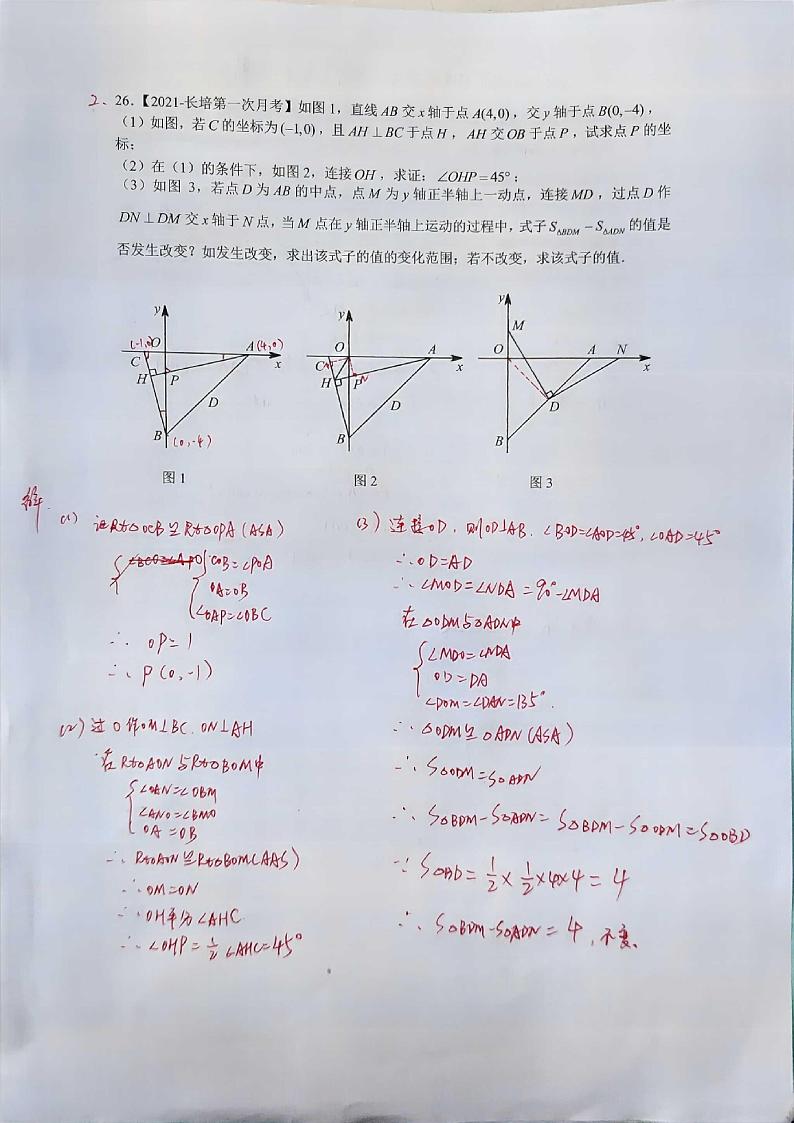 2、26.【2021-长培第一次月考】如图 1，直线 AB 交 x 轴于点 A(4,0)，交 y 轴于点 B(0,−4)，
（1）如图，若 C 的坐标为(−1,0)，且 AH⊥BC 于点 H，AH 交 OB 于点 P，试求点 P 的坐
标；
（2）在（1）的条件下，如图 2，连接 OH，求证：∠OHP=45°；
（3）如图 3，若点 D 为 AB 的中点，点 M 为 y 轴正半轴上一动点，连接 MD，过点 D 作
DN⊥DM 交 x 轴于 N 点，当 M 点在 y 轴正半轴上运动的过程中，式子 S△BDM − S△ADN 的值是
否发生改变？如发生改变，求出该式子的值的变化范围；若不改变，求该式子的值．
y
(-1,0) O A (4,0)
C x
H P
D
B (0,-4)
图 1
y
O A
C M x
H P N
D
B
图 2
y
M
O A N
x
D
B
图 3
解:
(1) 证Rt△OCB≌Rt△OPA (ASA)
∠COB=∠POA
OA=OB
∠OAP=∠OBC
∴ OP=1
∴ P(0,-1)
(2) 过O作OM⊥BC. ON⊥AH
在Rt△AON与Rt△BOM中
∠OAN=∠OBM
∠ANO=∠BMO
OA=OB
∴ Rt△AON≌Rt△BOM(AAS)
∴OM=ON
∴OH平分∠AHC
∴∠OHP=½∠AHC=45°
(3) 连接OD. 则OD⊥AB. ∠BOD=∠AOD=45°, ∠OAD=45°
∴OD=AD
∴∠MDO=∠NDA=90°-∠MDA
在△ODM与△ADN中
∠MDO=∠NDA
OD=DA
∠DOM=∠DAN=135°.
∴△ODM≌△ADN(ASA)
∴S△ODM=S△ADN
∴S△BDM-S△ADN=S△BDM-S△ODM=S△OBD
∵S△OBD=½×½×4×4=4
∴S△BDM-S△ADN=4, 不变.